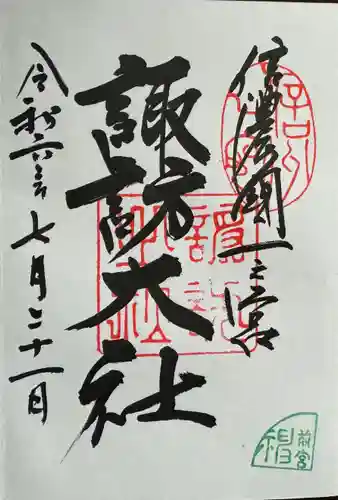 信濃國一之宮
諏訪大社
令和六年七月二十一日
前宮